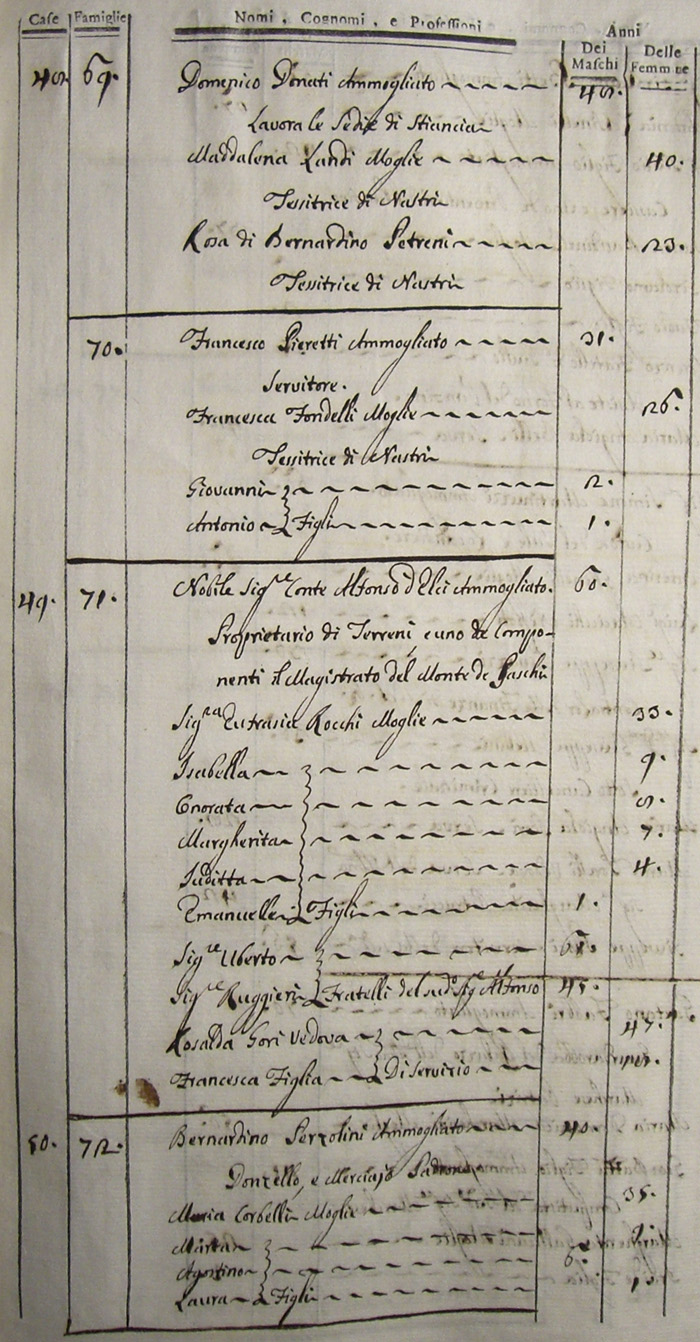 Case Famiglie Nomi, Cognomi, e Professioni Anni
Dei Maschi Delle Femmine
48. 69. Domenico Donati Ammogliato 48.
Lavora le Sedie di Stiancia
Maddalena Landi Moglie 40.
Tessitrice di Nastri
Rosa di Bernardino Petreni 23.
Tessitrice di Nastri
70. Francesco Pieretti Ammogliato 31.
Servitore.
Francesca Fondelli Moglie 26.
Tessitrice di Nastri
Giovanni 2.
Antonio Figli 1.
49. 71. Nobile Sig.re Conte Alfonso d'Elci Ammogliato. 60.
Proprietario di Terreni, e uno de Compo-
nenti il Magistrato del Monte de Paschi
Sig.ra Eufrasia Rocchi Moglie 33.
Isabella 9.
Onorata 8.
Margherita 7.
Iuditta 4.
Emanuelle Figli 1.
Sig.re Uberto
Sig.re Ruggieri Fratelli del sud.o Sig.re Alfonso 45.
Rosalda Gori Vedova 47.
Francesca Figlia Di Servizio
50. 72. Bernardino Perzolini Ammogliato 40.
Donzello, e Merciajo Padrone
Maria Corbelli Moglie 35.
Marta
Agostino 6.
Laura Figli 1.